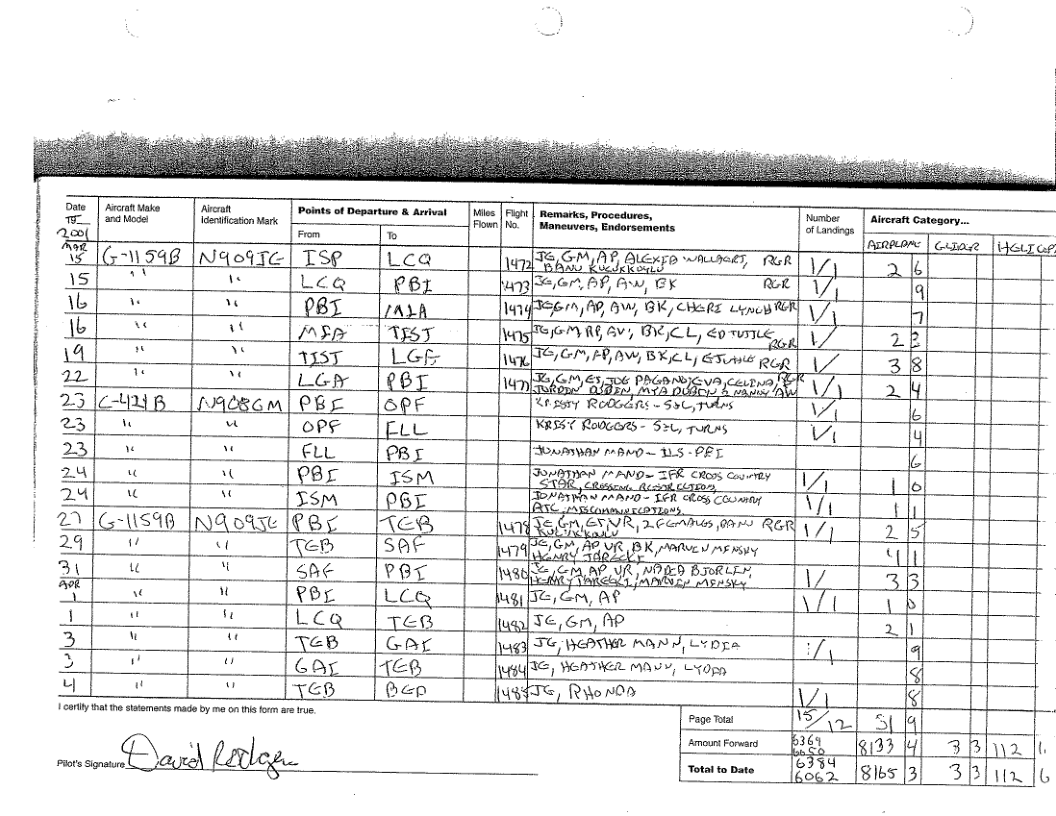 Date Aircraft Make and Model Aircraft Identification Mark Points of Departure & Arrival Miles Flown Flight No. Remarks, Procedures, Maneuvers, Endorsements Number of Landings Aircraft Category...
2001 From To AIRPLANE GLIDER HELICOPT
MAR 15 G-1159B N909JE ISP LCQ 1472 JE, GM, AP, ALEXIA WALLAERT, RGR 1/1 2 6
BANU KUCUKKOYLU
15 " " LCQ PBI 1473 JE, GM, AP, AW, BK RGR 1/1 9
16 " " PBI MIA 1474 JE, GM, AP, AW, BK, CHERI LYNCH RGR 1/1 7
16 " " MIA TIST 1475 JE, GM, AP, AW, BK, CL, ED TUTTLE RGR 1/ 2 3
19 " " TIST LGA 1476 JE, GM, AP, AW, BK, CL, E TUTTLE RGR 1/ 3 8
22 " " LGA PBI 1477 JE, GM, ET, JOE PAGANO, EVA, CELINA, RGR 1/1 2 4
JORDAN DUBIN, MYA DUBIN & NANNY AW
23 C-421B N908GM PBI OPF KRISTY RODGERS - S&L, TURNS 1/1 6
23 " " OPF FLL KRISY RODGERS - S&L, TURNS 1/1 4
23 " " FLL PBI JONATHAN MANO - ILS - PBI 6
24 " " PBI ISM JONATHAN MANO - IFR CROSS COUNTRY 1/1 1 0
STAR, CROSSING RESTRICTIONS
24 " " ISM PBI JONATHAN MANO - IFR CROSS COUNTRY 1/1 1 1
ATC, MISCOMMUNICATIONS
27 G-1159B N909JE PBI TEB 1478 JE, GM, ET, VR, 2 FEMALES, BANU RGR 1/1 2 5
29 " " TEB SAF 1479 JE, GM, AP, VR, BK, MARVIN MINSKY 4 1
HENRY JARECKI
31 " " SAF PBI 1480 JE, GM, AP, VR, NADIA BJORLIN, 1/ 3 3
HENRY JARECKI, MARVIN MINSKY
APR 1 " " PBI LCQ 1481 JE, GM, AP 1/1 1 0
1 " " LCQ TEB 1482 JE, GM, AP 2 1
3 " " TEB GAI 1483 JE, HEATHER MANN, LYDIA 1/1 9
3 " " GAI TEB 1484 JE, HEATHER MANN, LYDIA 8
4 " " TEB BED 1485 JE, RHONDA 1/1 8
I certify that the statements made by me on this form are true.
Page Total 15/12 31 9
Amount Forward 6369 6050 8133 4 3 3 112
Pilot's Signature David Rodgers
Total to Date 6384 6062 8165 3 3 3 112 6